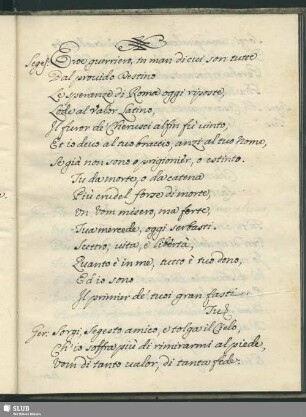 Segest: Eroe guerriero, in man di cui son tutte
Dal provido Destino
Le speranze di Roma oggi riposte,
Lode al valor Latino,
Il furor de' Cherusci alfin fù vinto,
Et io devo al tuo braccio, anzi al tuo Nome,
Se già non sono o prigionier, o estinto.
Tu da morte, o da catena
Più crudel forse di morte,
Un Uom misero, ma forte,
Tua mercede, oggi serbasti.
Scettro, vita, e libertà,
Quanto è in me, tutto è tuo dono,
Ed io sono
Il primier de' tuoi gran fasti.
Tu &
Ger. Sorgi, Segesto amico, e tolga il Cielo,
Ch'io soffra più di rimirarmi al piede,
Uom di tanto valor, di tanta fede.
SLUB